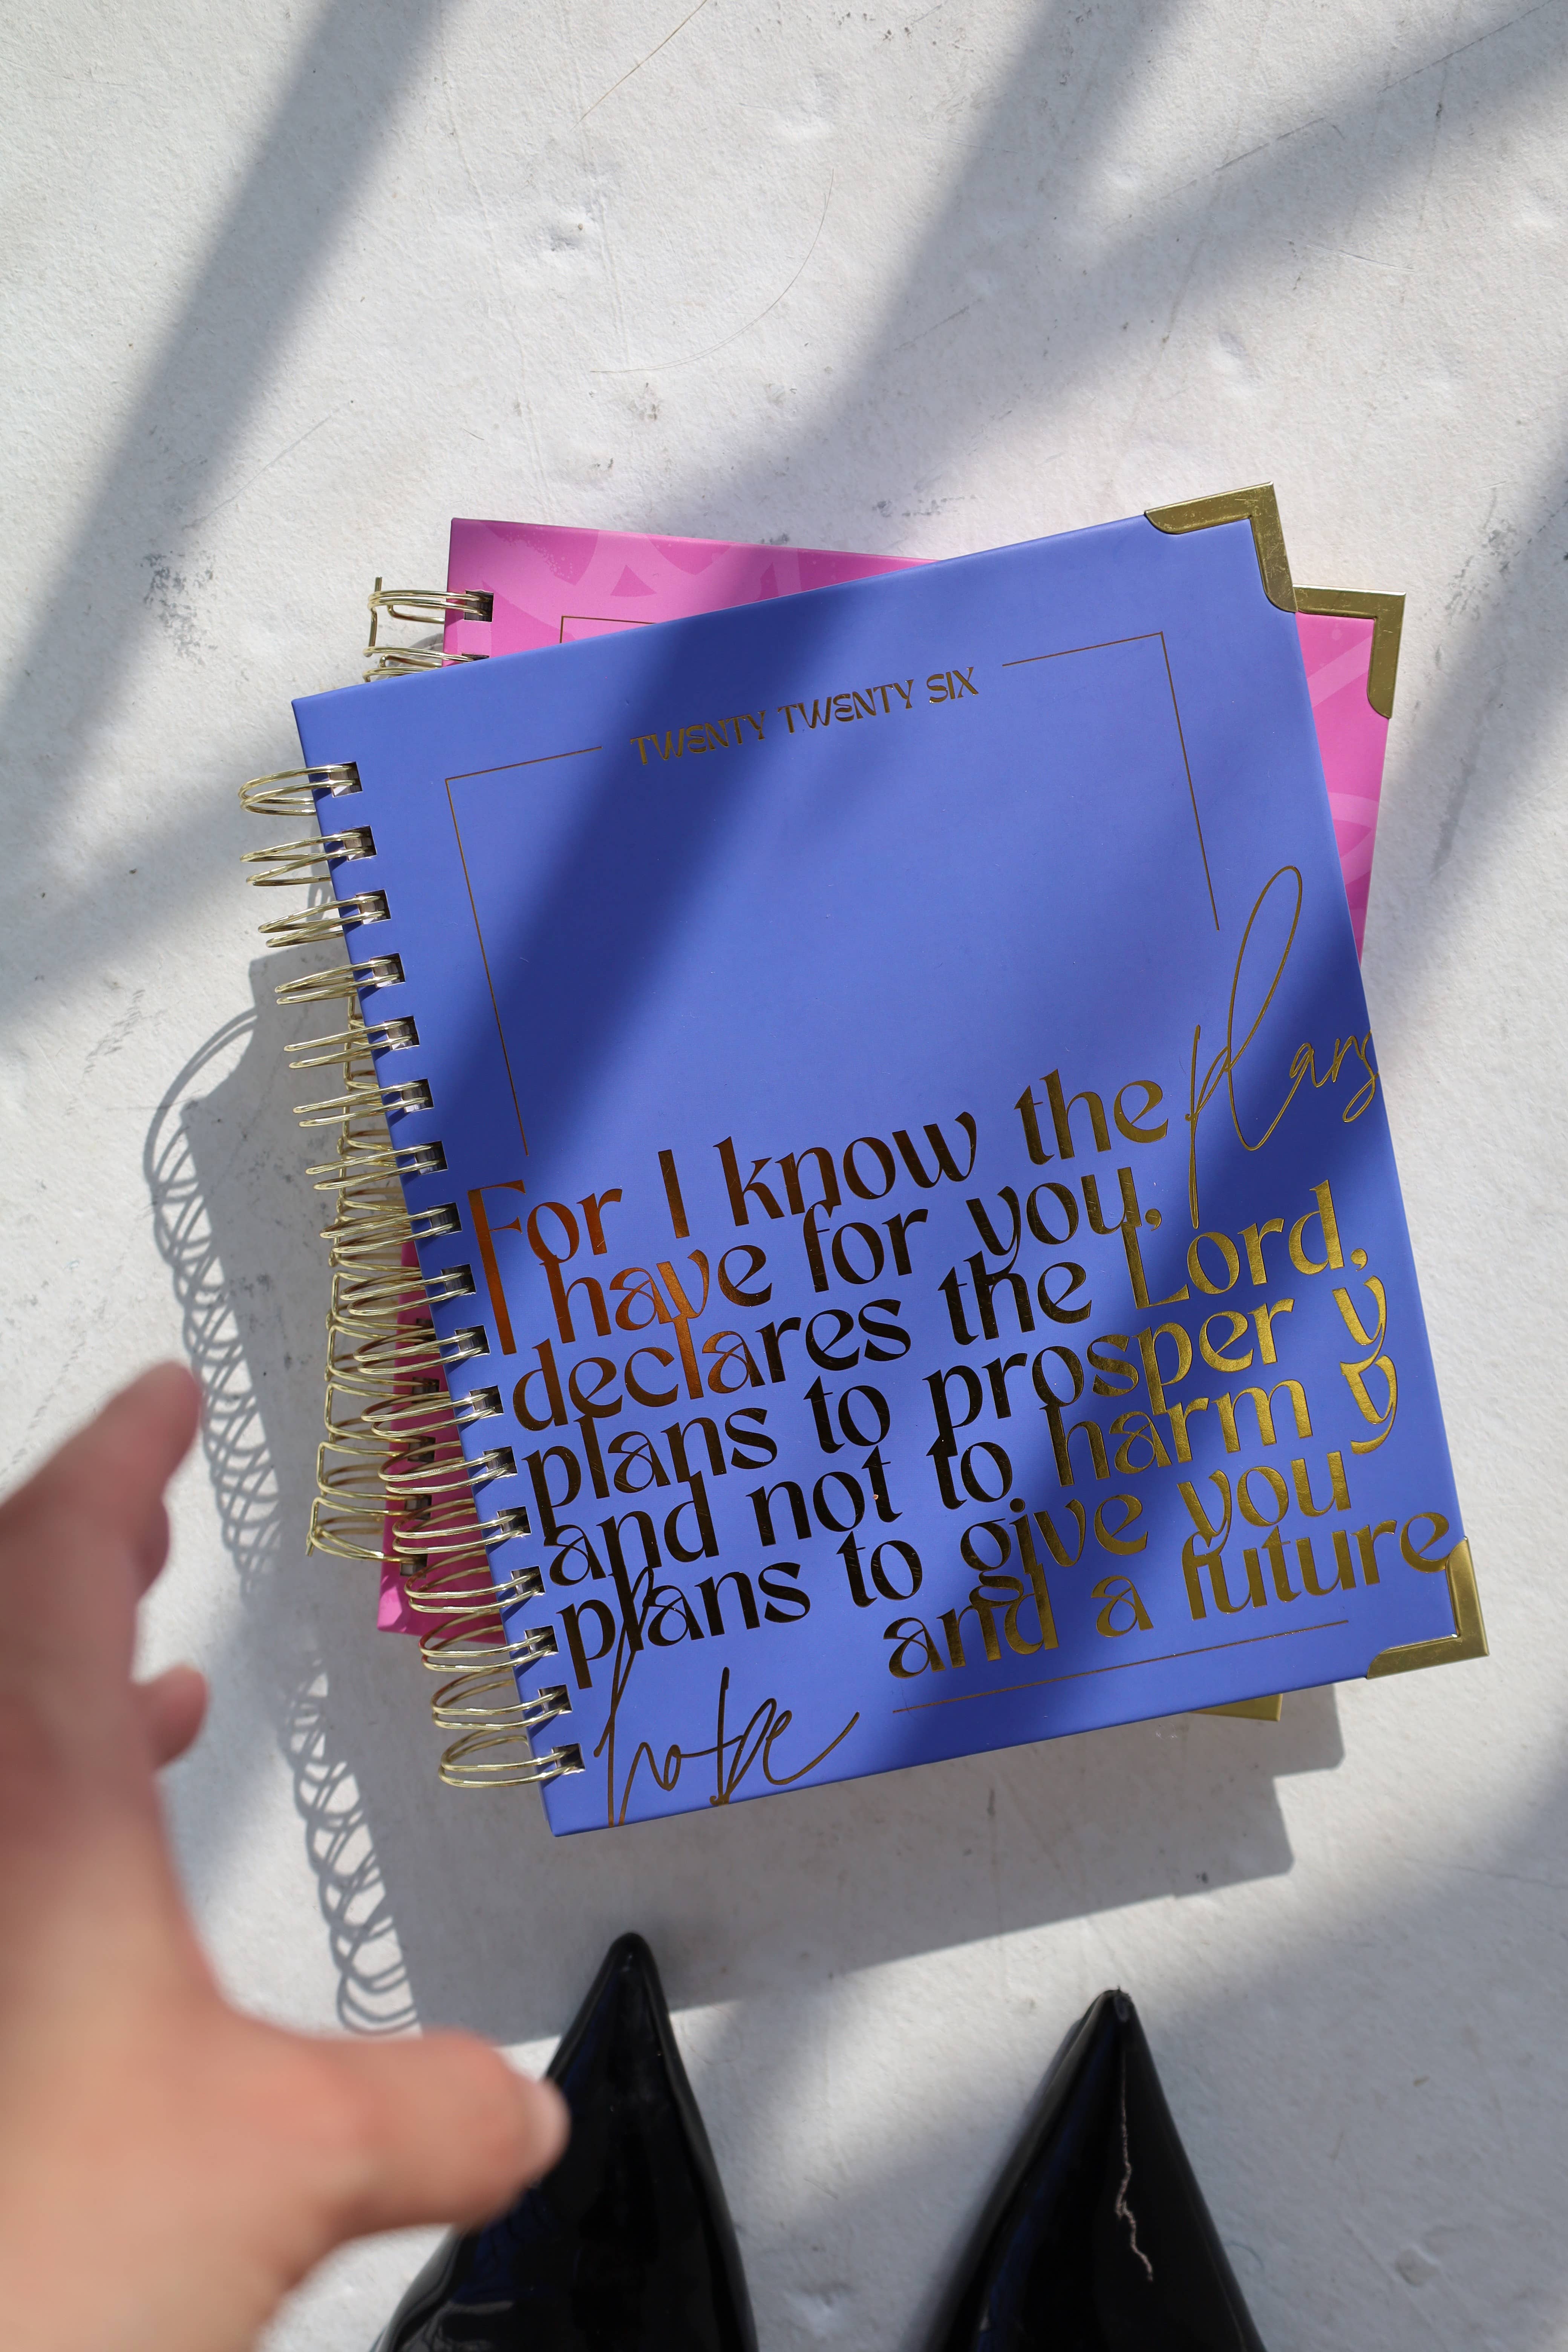 TWENTY TWENTY SIX
For I know the plans
I have for you,
declares the Lord,
plans to prosper y
and not to harm y
plans to give you
hope and a future